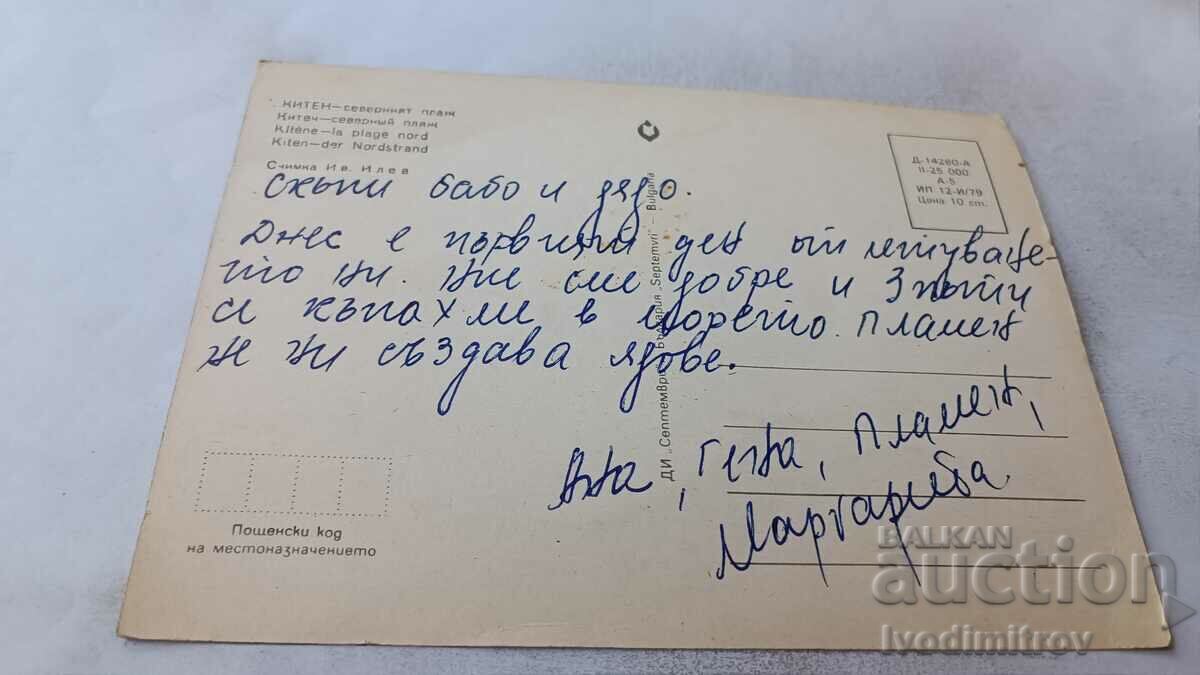 КИТЕН—северният плаж
Китен—северный пляж
Kitène—la plage nord
Kiten—der Nordstrand
Снимка Ив. Илев
Д-14280-А
II-25 000
А-5
ИП 12-И/79
Цена 10 ст.
Скъпи бабо и дядо.
Днес е първият ден от летуване-
то ни. Ние сме добре и 3 пъти
се къпахме в морето. Пламен
не ни създава ядове.
Ана, Гена, Пламен,
Маргарита
ДИ „Септември“ България „Septemvri“ — Bulgaria
Пощенски код
на местоназначението
BALKAN
auction
Ivodimitrov